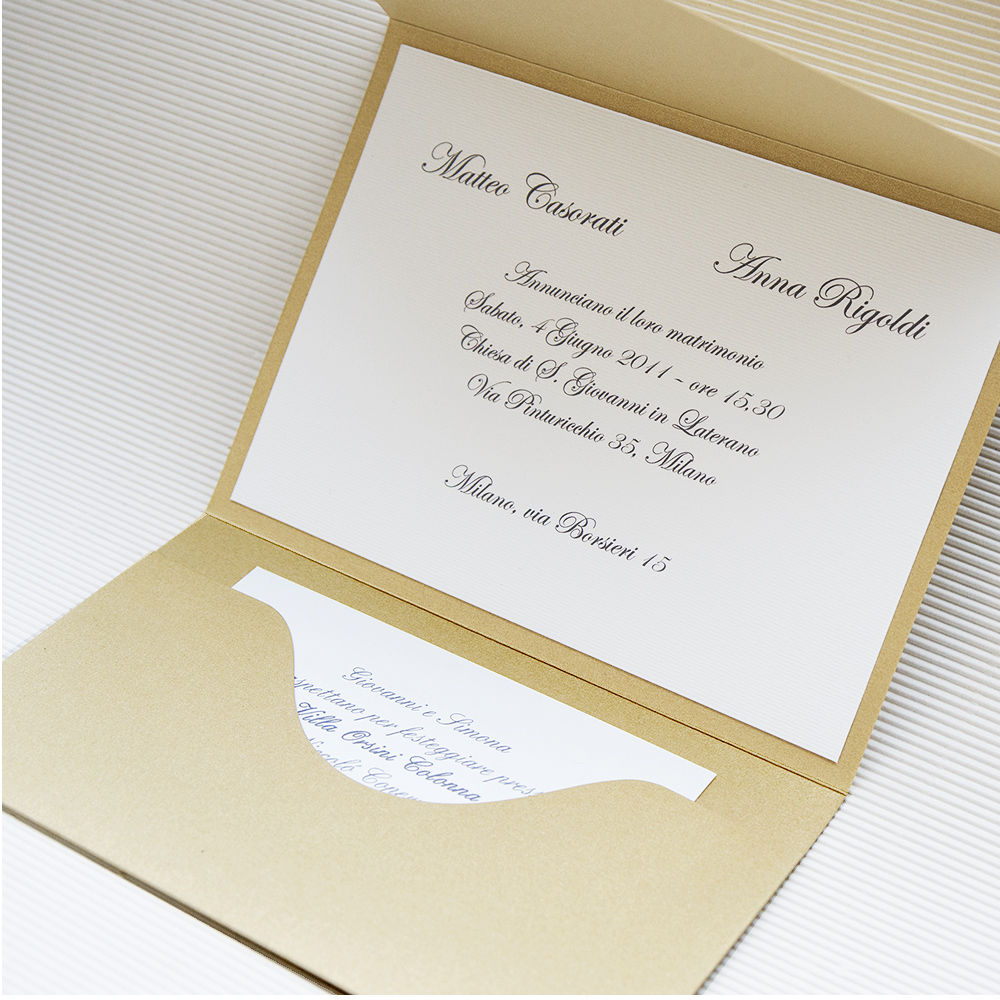 Matteo Casorati
Anna Rigoldi
Annunciano il loro matrimonio
Sabato, 4 Giugno 2011 - ore 15,30
Chiesa di S. Giovanni in Laterano
Via Pinturicchio 35, Milano
Milano, via Borsieri 15
Giovanni e Simona
spettano per festeggiare pres
Villa Orsini Colonna